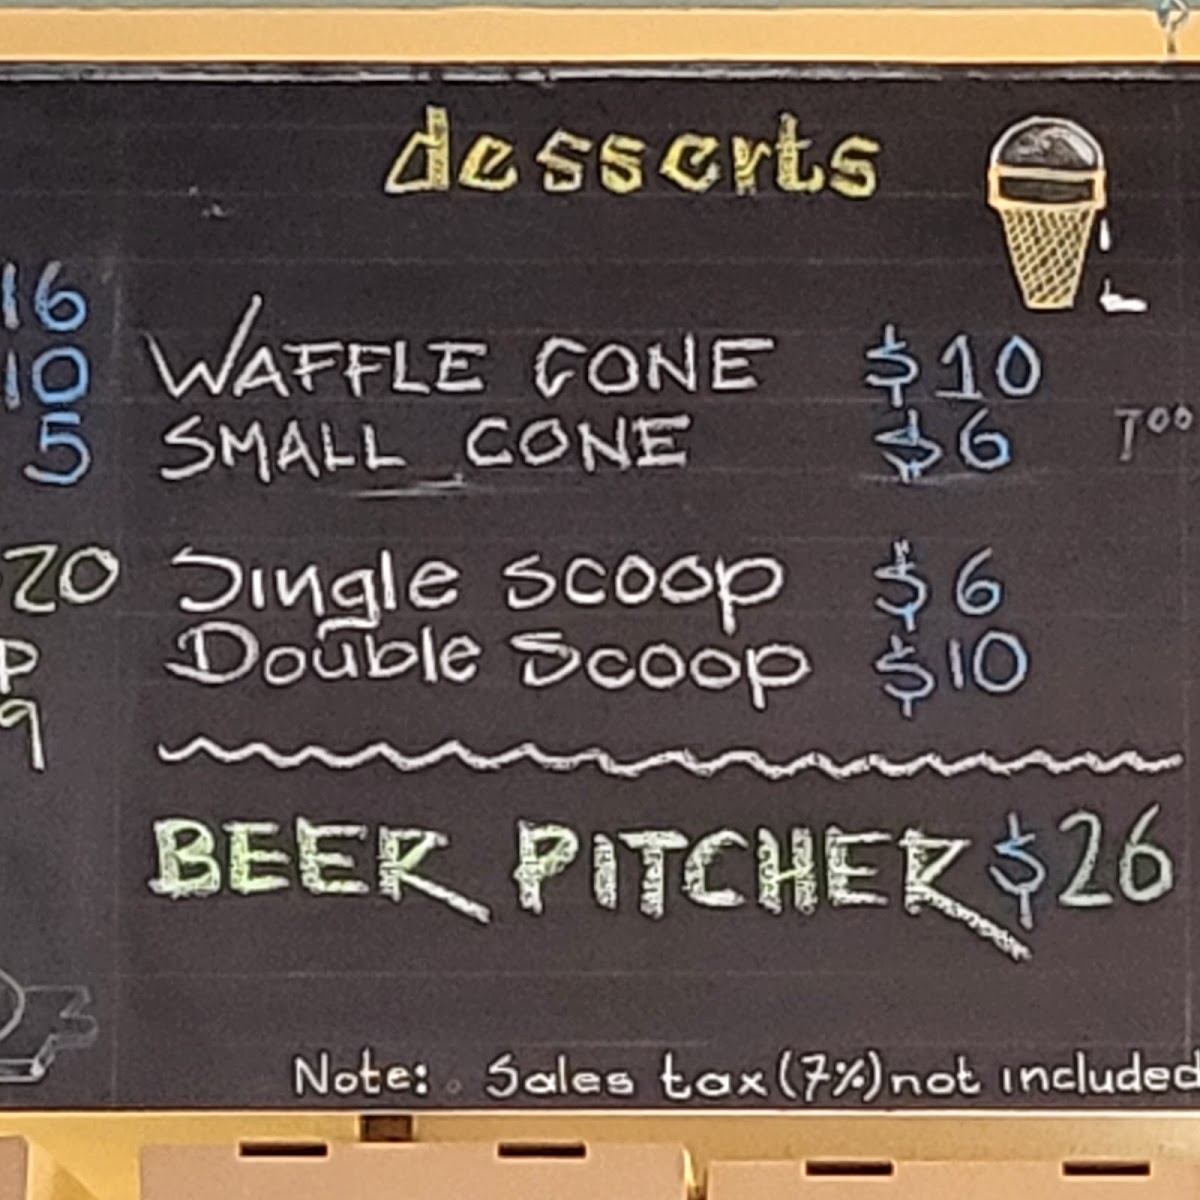 desserts
16
10
5
WAFFLE CONE $10
SMALL CONE $6 7°°
20
P
9
Single scoop $6
Double Scoop $10
BEER PITCHER $26
Note: Sales tax (7%) not included